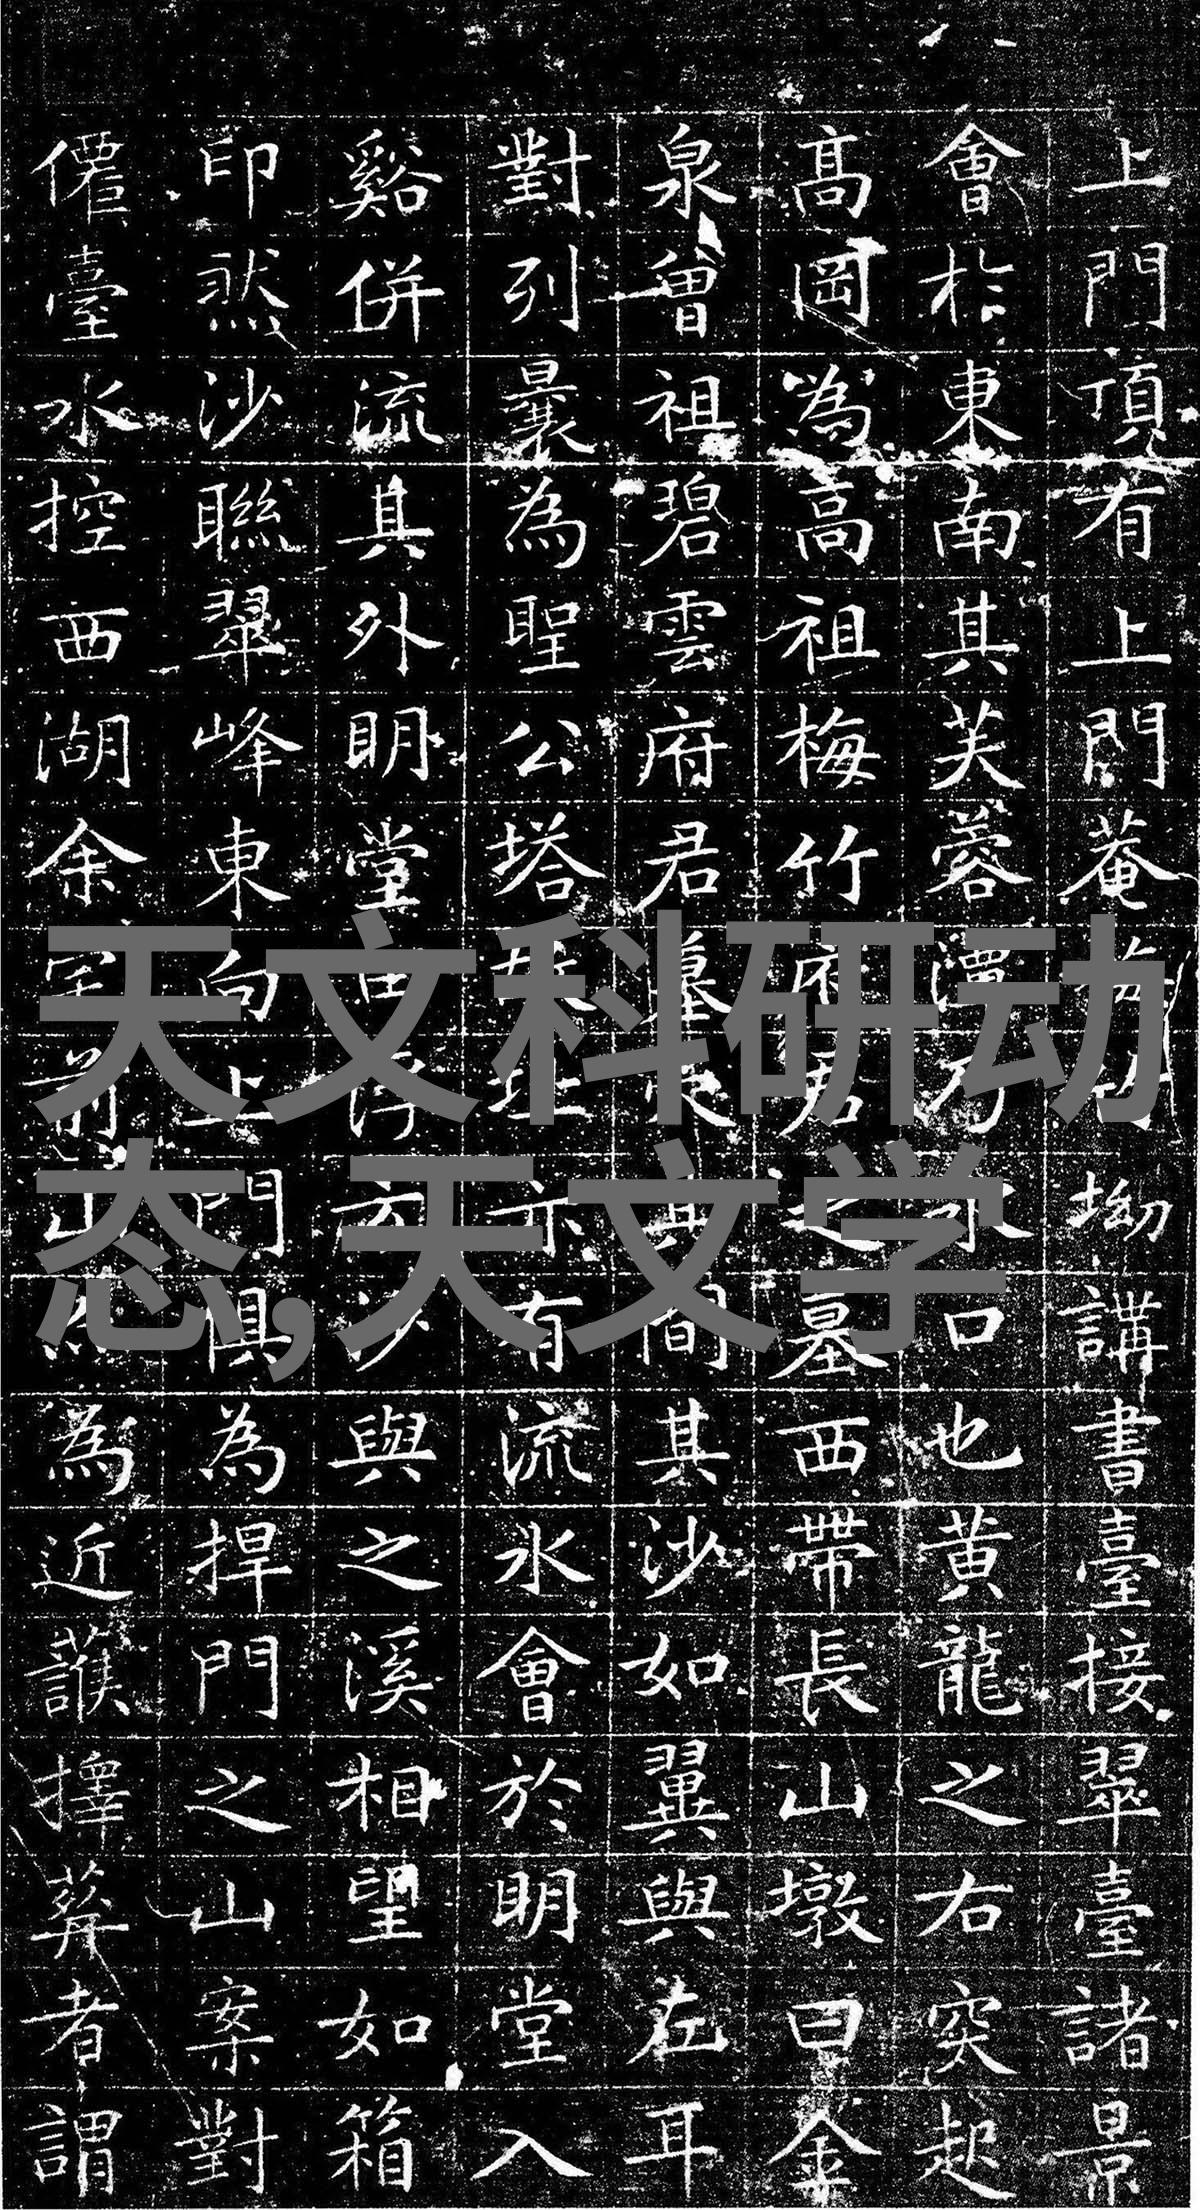 上門頂有上門菴坳講書臺接翠臺諸景
會於東南其芙蓉潭乃水口也黃龍之右突起
高岡為高祖梅竹府君之墓西帶長山墩曰金
泉曾祖碧雲府君墓其間其沙如翼與左耳
對列曩為聖公塔址亦有流水會於明堂入
谿併流其外明堂浮沙與之溪相望如箱
印然沙聯翠峰東向上門俱為捍門之山案對
僊臺水控西湖余前山為近護擇葬者謂
天文科研动
态,天文学